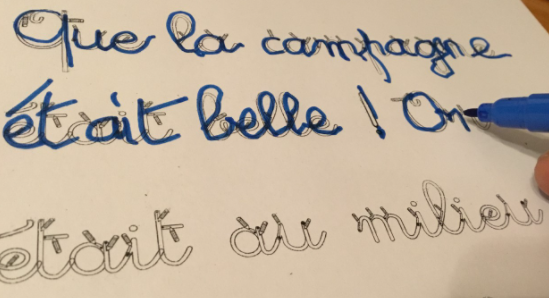 Que la campagne
était belle ! On
était au milieu